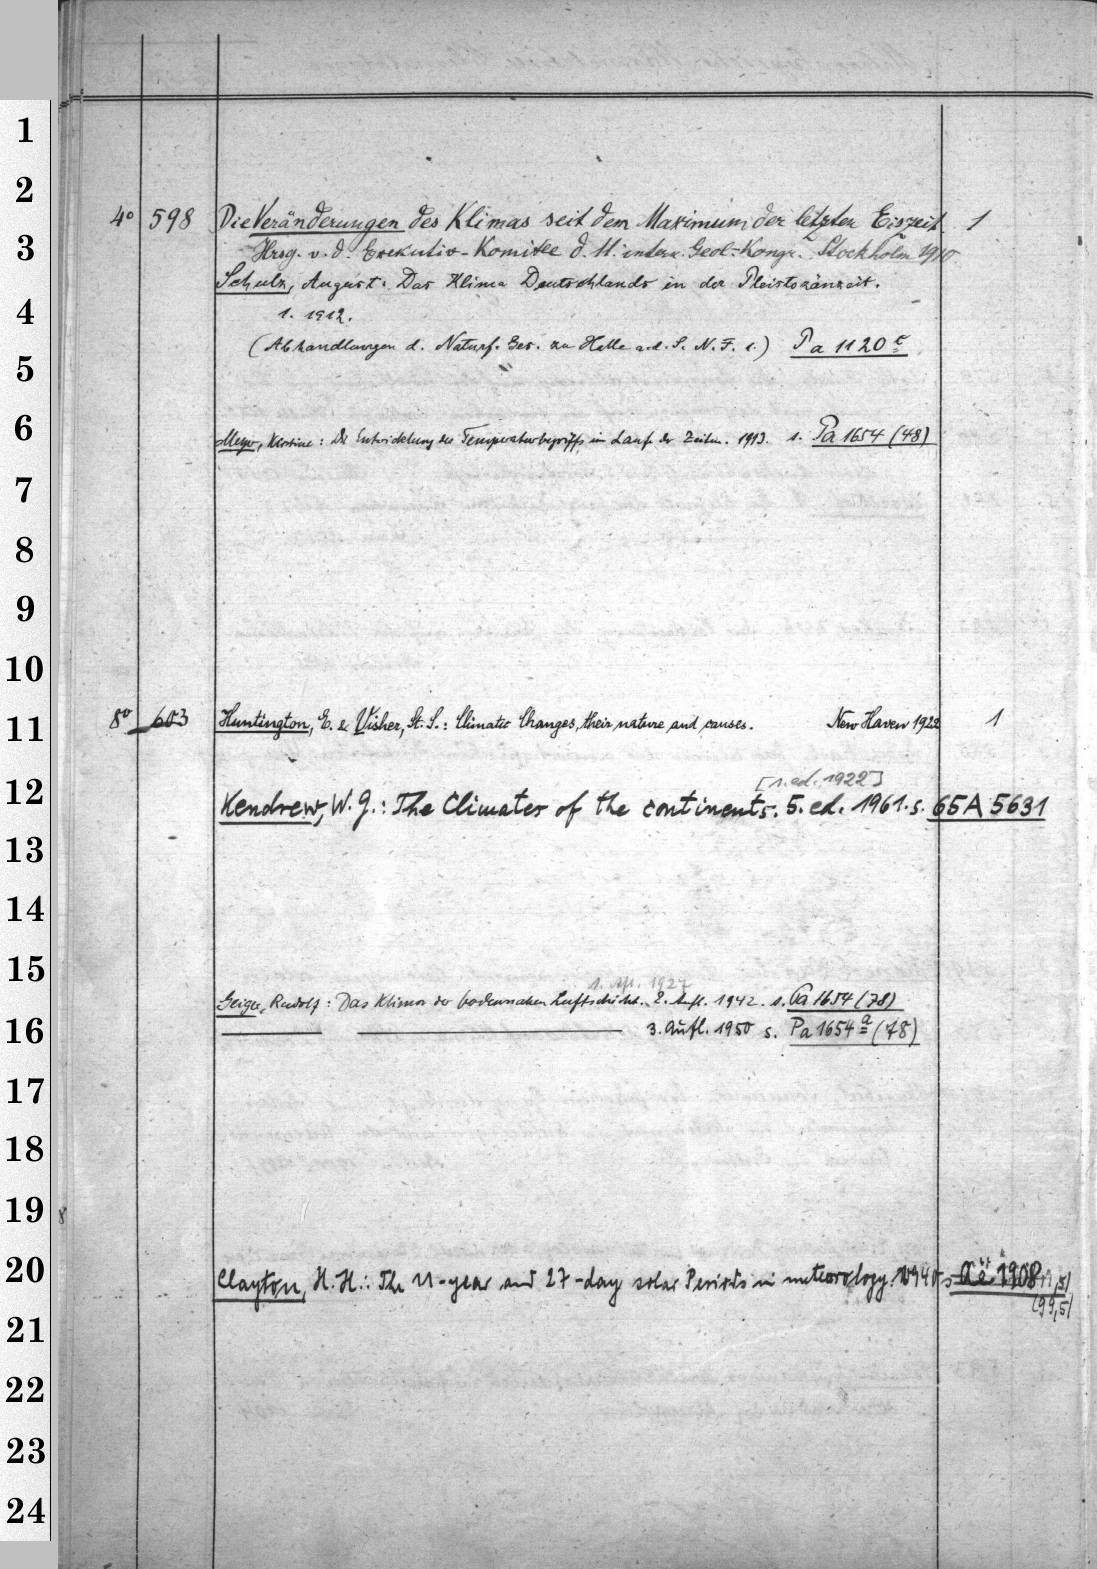 1
2
4° 598 Die Veränderungen des Klimas seit dem Maximum der letzten Eiszeit. 1
3
Hrsg. v. d. Exekutiv-Komitee d. 11. intern. Geol.-Kongr. Stockholm 1910
Schulz, August: Das Klima Deutschlands in der Pleistozänzeit.
4
1. 1912.
(Abhandlungen d. Naturf. Ges. zu Halle a. d. S. N. F. 1.) Pa 1120 c
5
6
Meyer, Kirstine: Die Entwickelung des Temperaturbegriffs im Lauf der Zeiten. 1913. s. Pa 1654 (48)
7
8
9
10
8° 603 Huntington, E. & Visher, St. S.: Climatic Changes, their nature and causes. New Haven 1922 1
11
[1. ed. 1922]
12
Kendrew, W. G.: The Climates of the continents. 5. ed. 1961. s. 65 A 5631
13
14
15
1. Afl. 1927
Geiger, Rudolf: Das Klima der bodennahen Luftschicht. 2. Aufl. 1942. s. Pa 1654 (78)
16
3. Aufl. 1950 s. Pa 1654 a (78)
17
18
19
20
Clayton, H. H.: The 11-year and 27-day solar Periods in meteorology. 1940 s. 1908
(99,5)
21
22
23
24